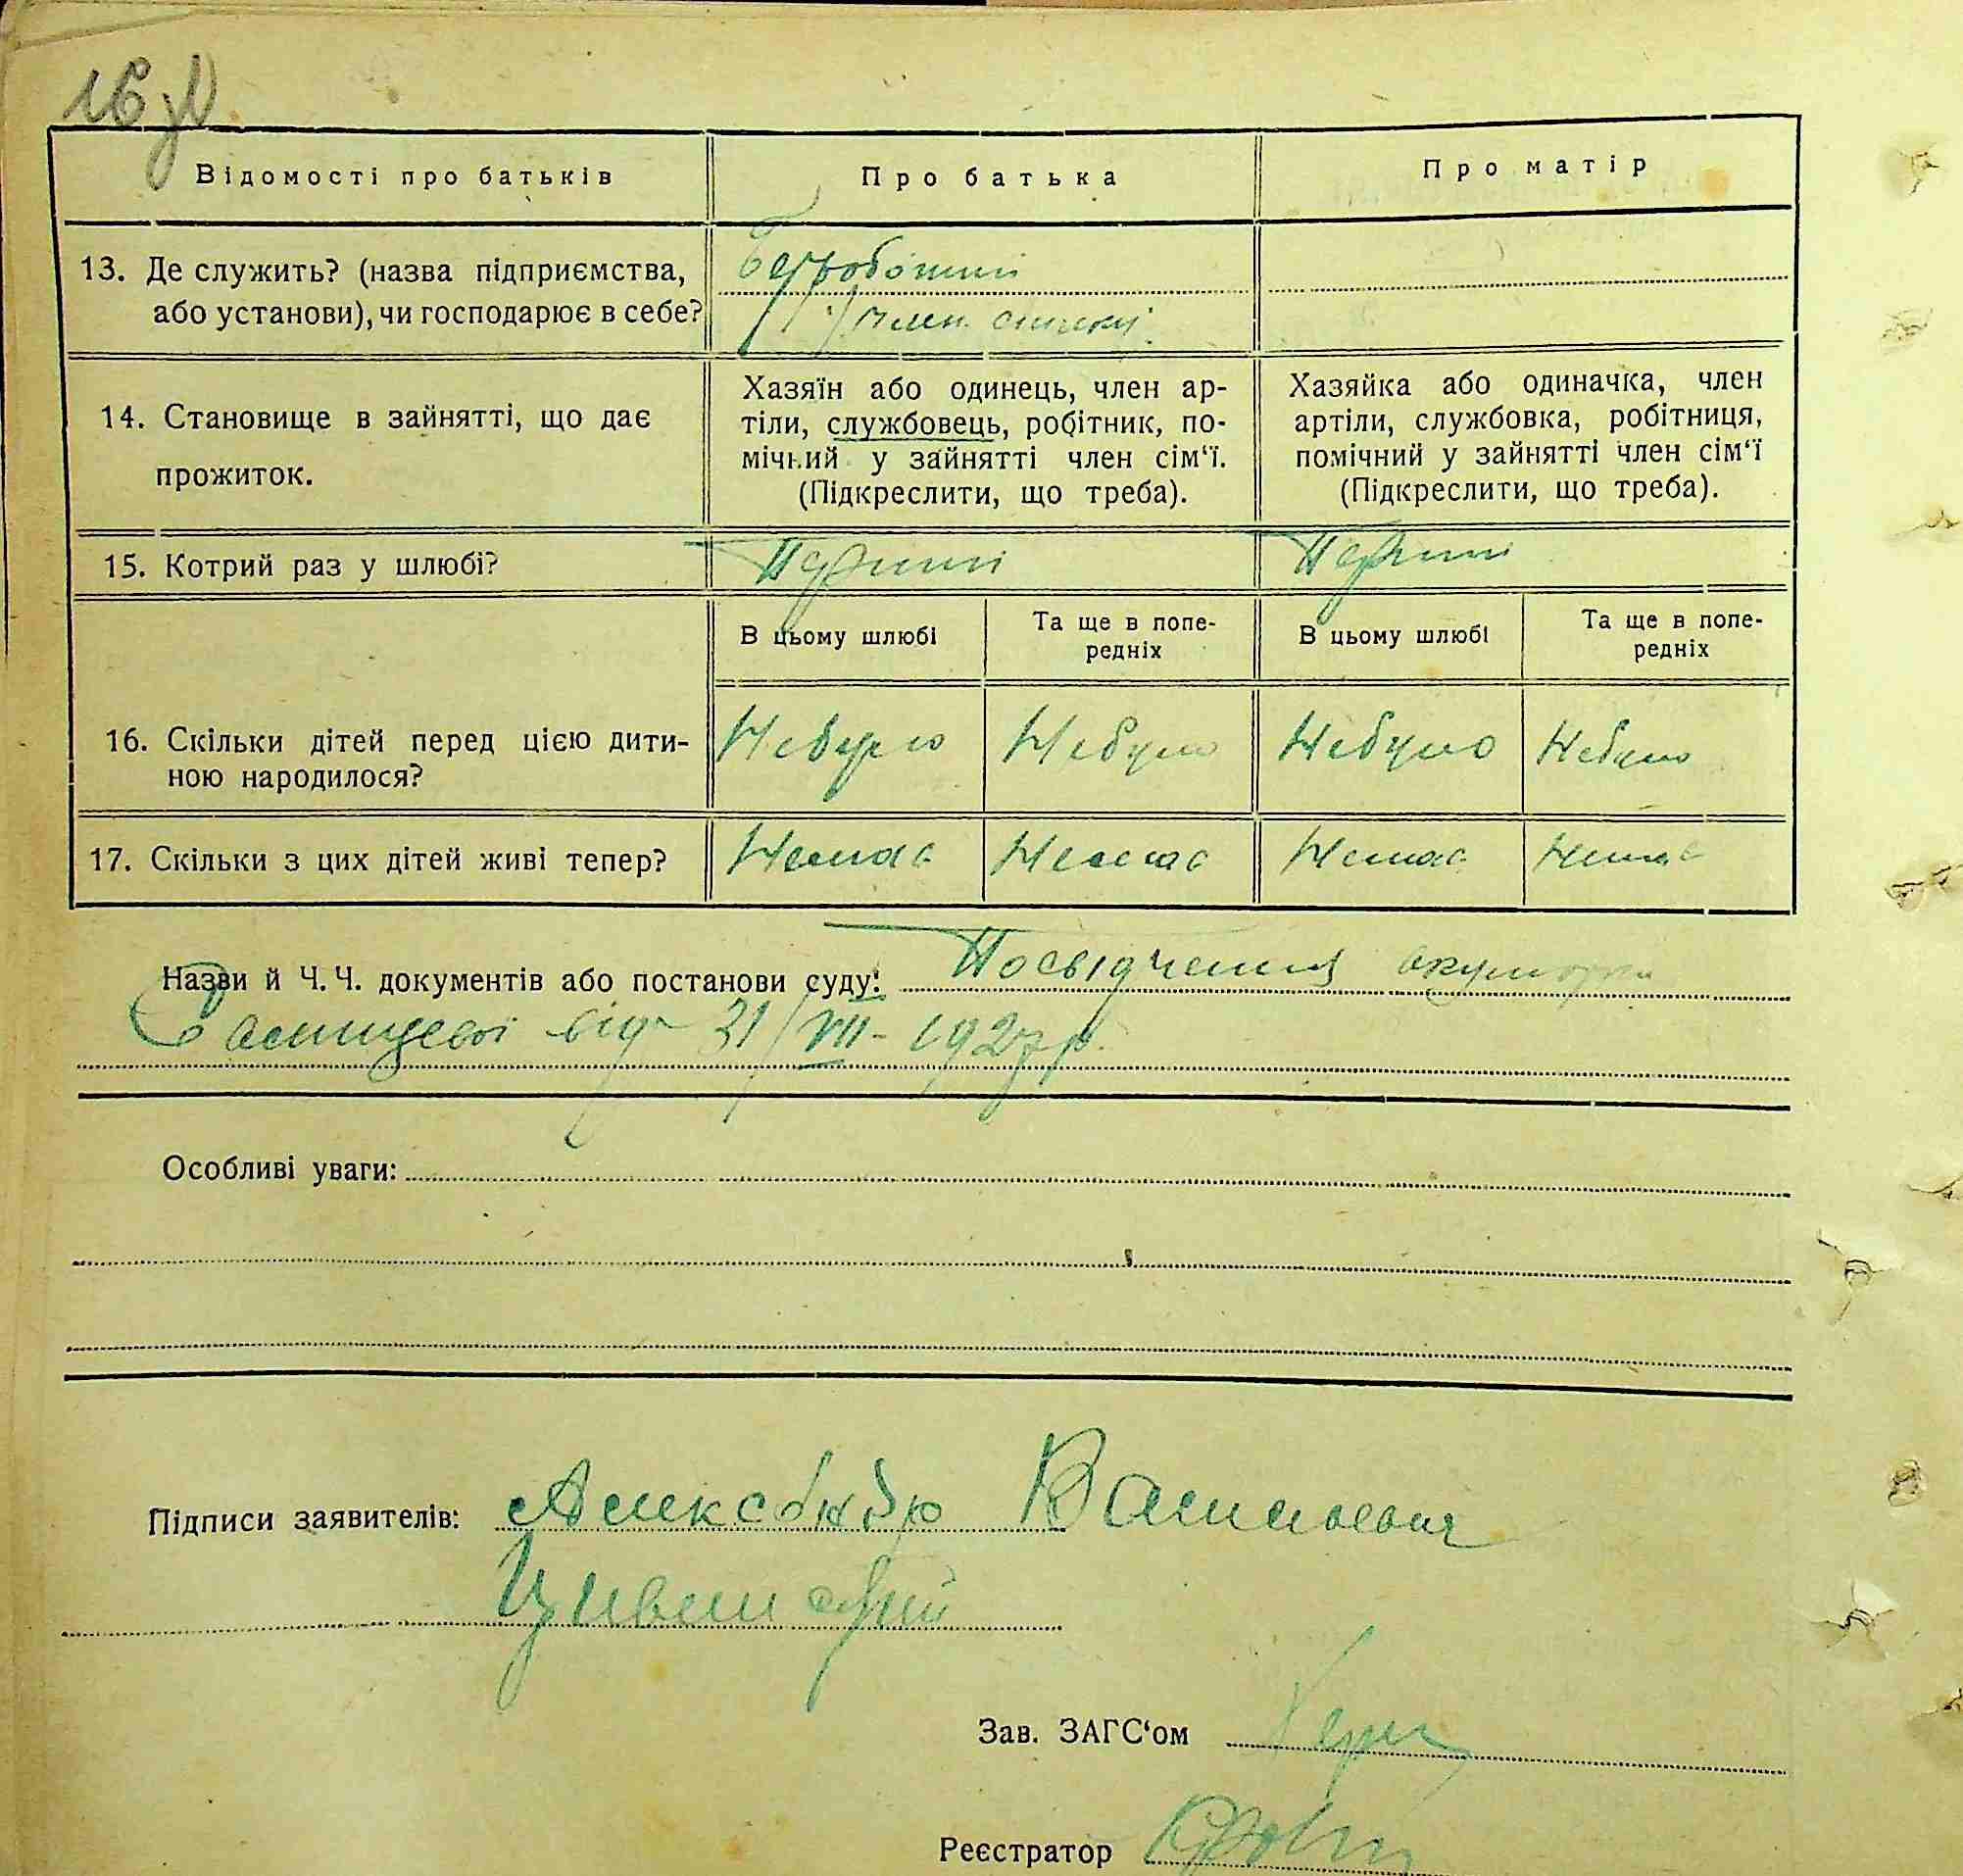 16
Відомості про батьків
Про батька
Про матір
13. Де служить? (назва підприємства,
або установи), чи господарює в себе?
Безробітний
член спілки
14. Становище в зайнятті, що дає
прожиток.
Хазяїн або одинець, член ар-
тіли, службовець, робітник, по-
мічний у зайнятті член сім‘ї.
(Підкреслити, що треба).
Хазяйка або одиначка, член
артіли, службовка, робітниця,
помічний у зайнятті член сім‘ї
(Підкреслити, що треба).
15. Котрий раз у шлюбі?
Перший
Перший
В цьому шлюбі
Та ще в попе-
редніх
В цьому шлюбі
Та ще в попе-
редніх
16. Скільки дітей перед цією дити-
ною народилося?
Небуло
Небуло
Небуло
Небуло
17. Скільки з цих дітей живі тепер?
Немає
Немає
Немає
Немає
Назви й Ч. Ч. документів або постанови суду: Посвідчення
від 31/VII-1927 р.
Особливі уваги:
Підписи заявителів:
Зав. ЗАГС‘ом
Реєстратор